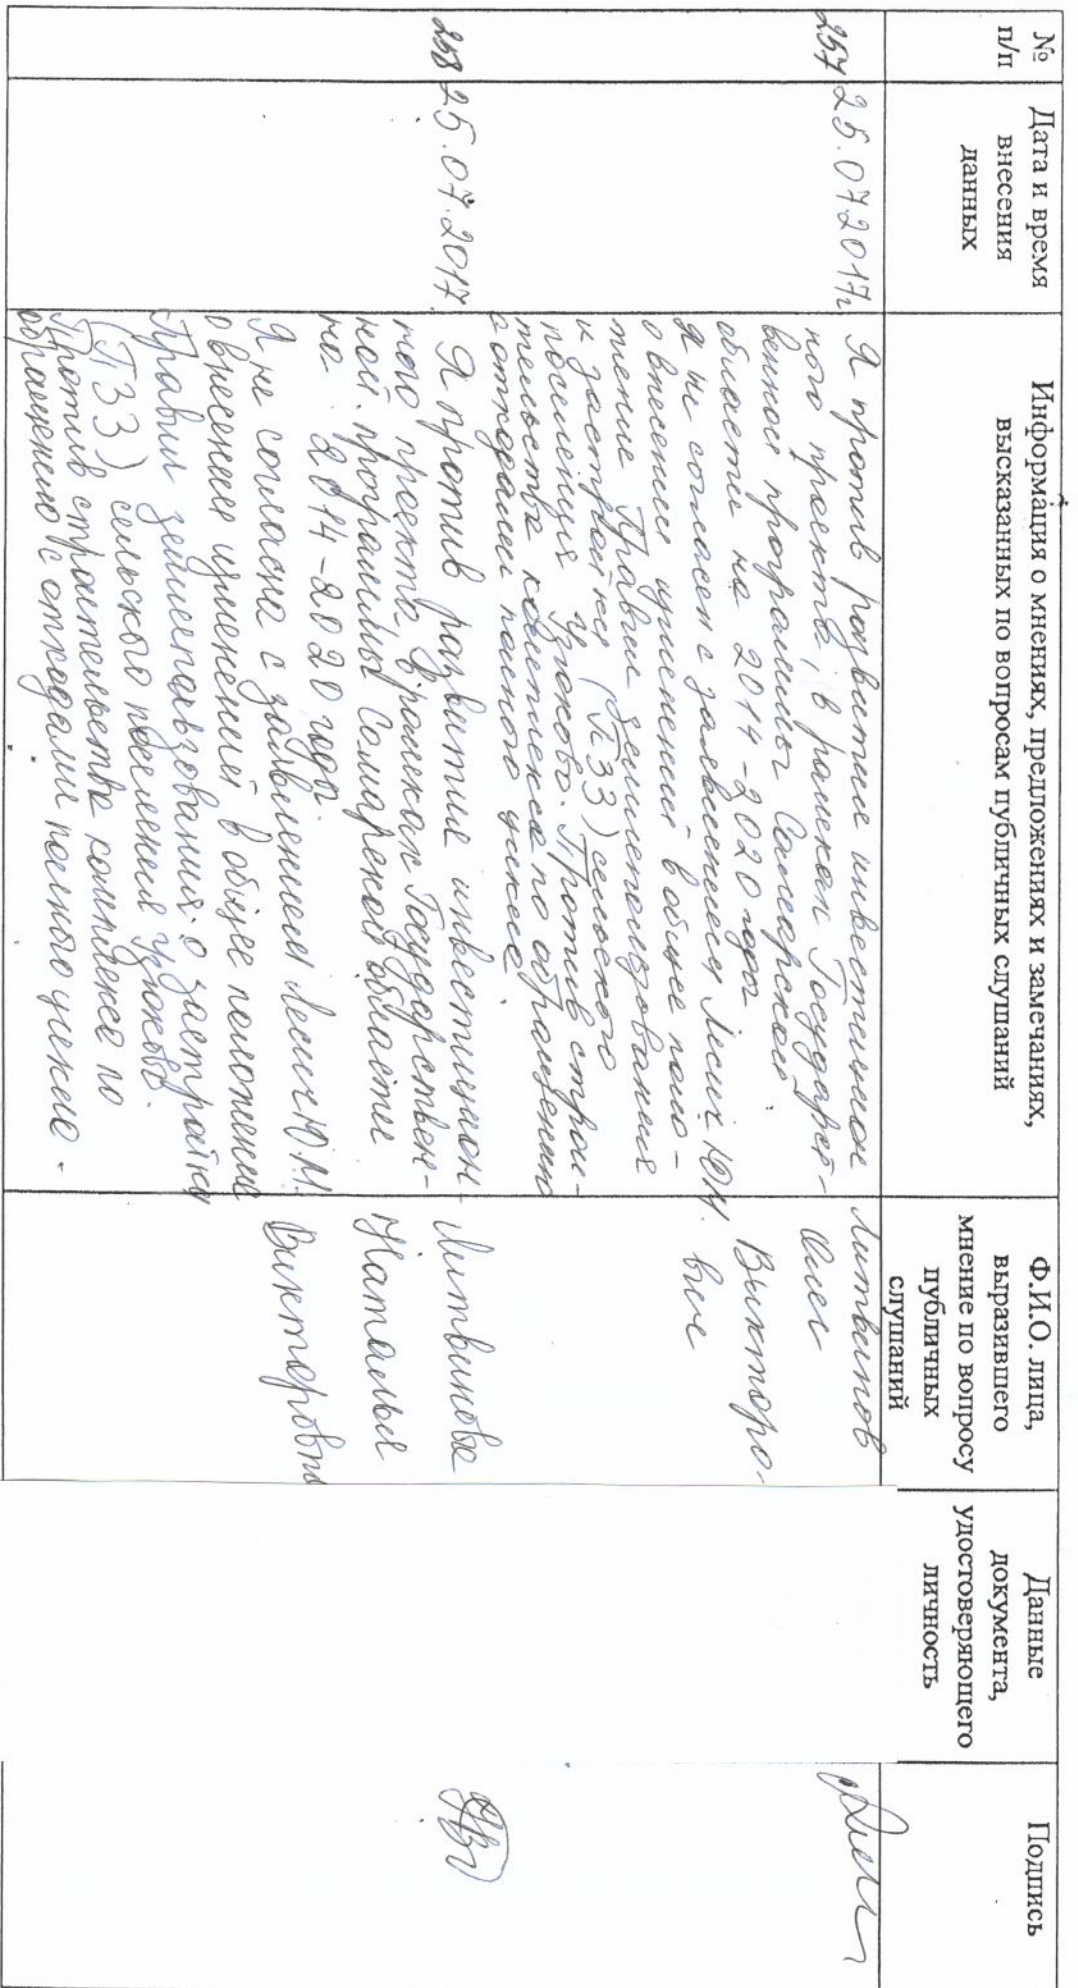 №
п/п
Дата и время
внесения
данных
Информация о мнениях, предложениях и замечаниях,
высказанных по вопросам публичных слушаний
Ф.И.О. лица,
выразившего
мнение по вопросу
публичных
слушаний
Данные
документа,
удостоверяющего
личность
Подпись
257
25.07.2017г
Я против развитие инвестицион
ного проекта, в рамках Государст-
венной программы Самарской
области на 2014-2020 годы
Я не согласен с заявлением Лесик Ю.М.
о внесении изменений в общее поло-
жение Правил землепользования
и застройки (ПЗЗ) сельского
поселения Узюково. Против строи-
тельства комплекса по обращению
с отходами полного цикла.
Литвинов
Олег
Викторо-
вич
258
25.07.2017.
Я против развития инвестицион-
ного проекта в рамках Государствен-
ной программы Самарской области
на 2014-2020 годы.
Я не согласна с заявлением Лесик Ю.М.
о внесение изменений в общее положение
Правил землепользования о застройки
(ПЗЗ) сельского поселения Узюково.
Против строительства комплекса по
обращению с отходами полного цикла.
Литвинова
Наталья
Викторовна